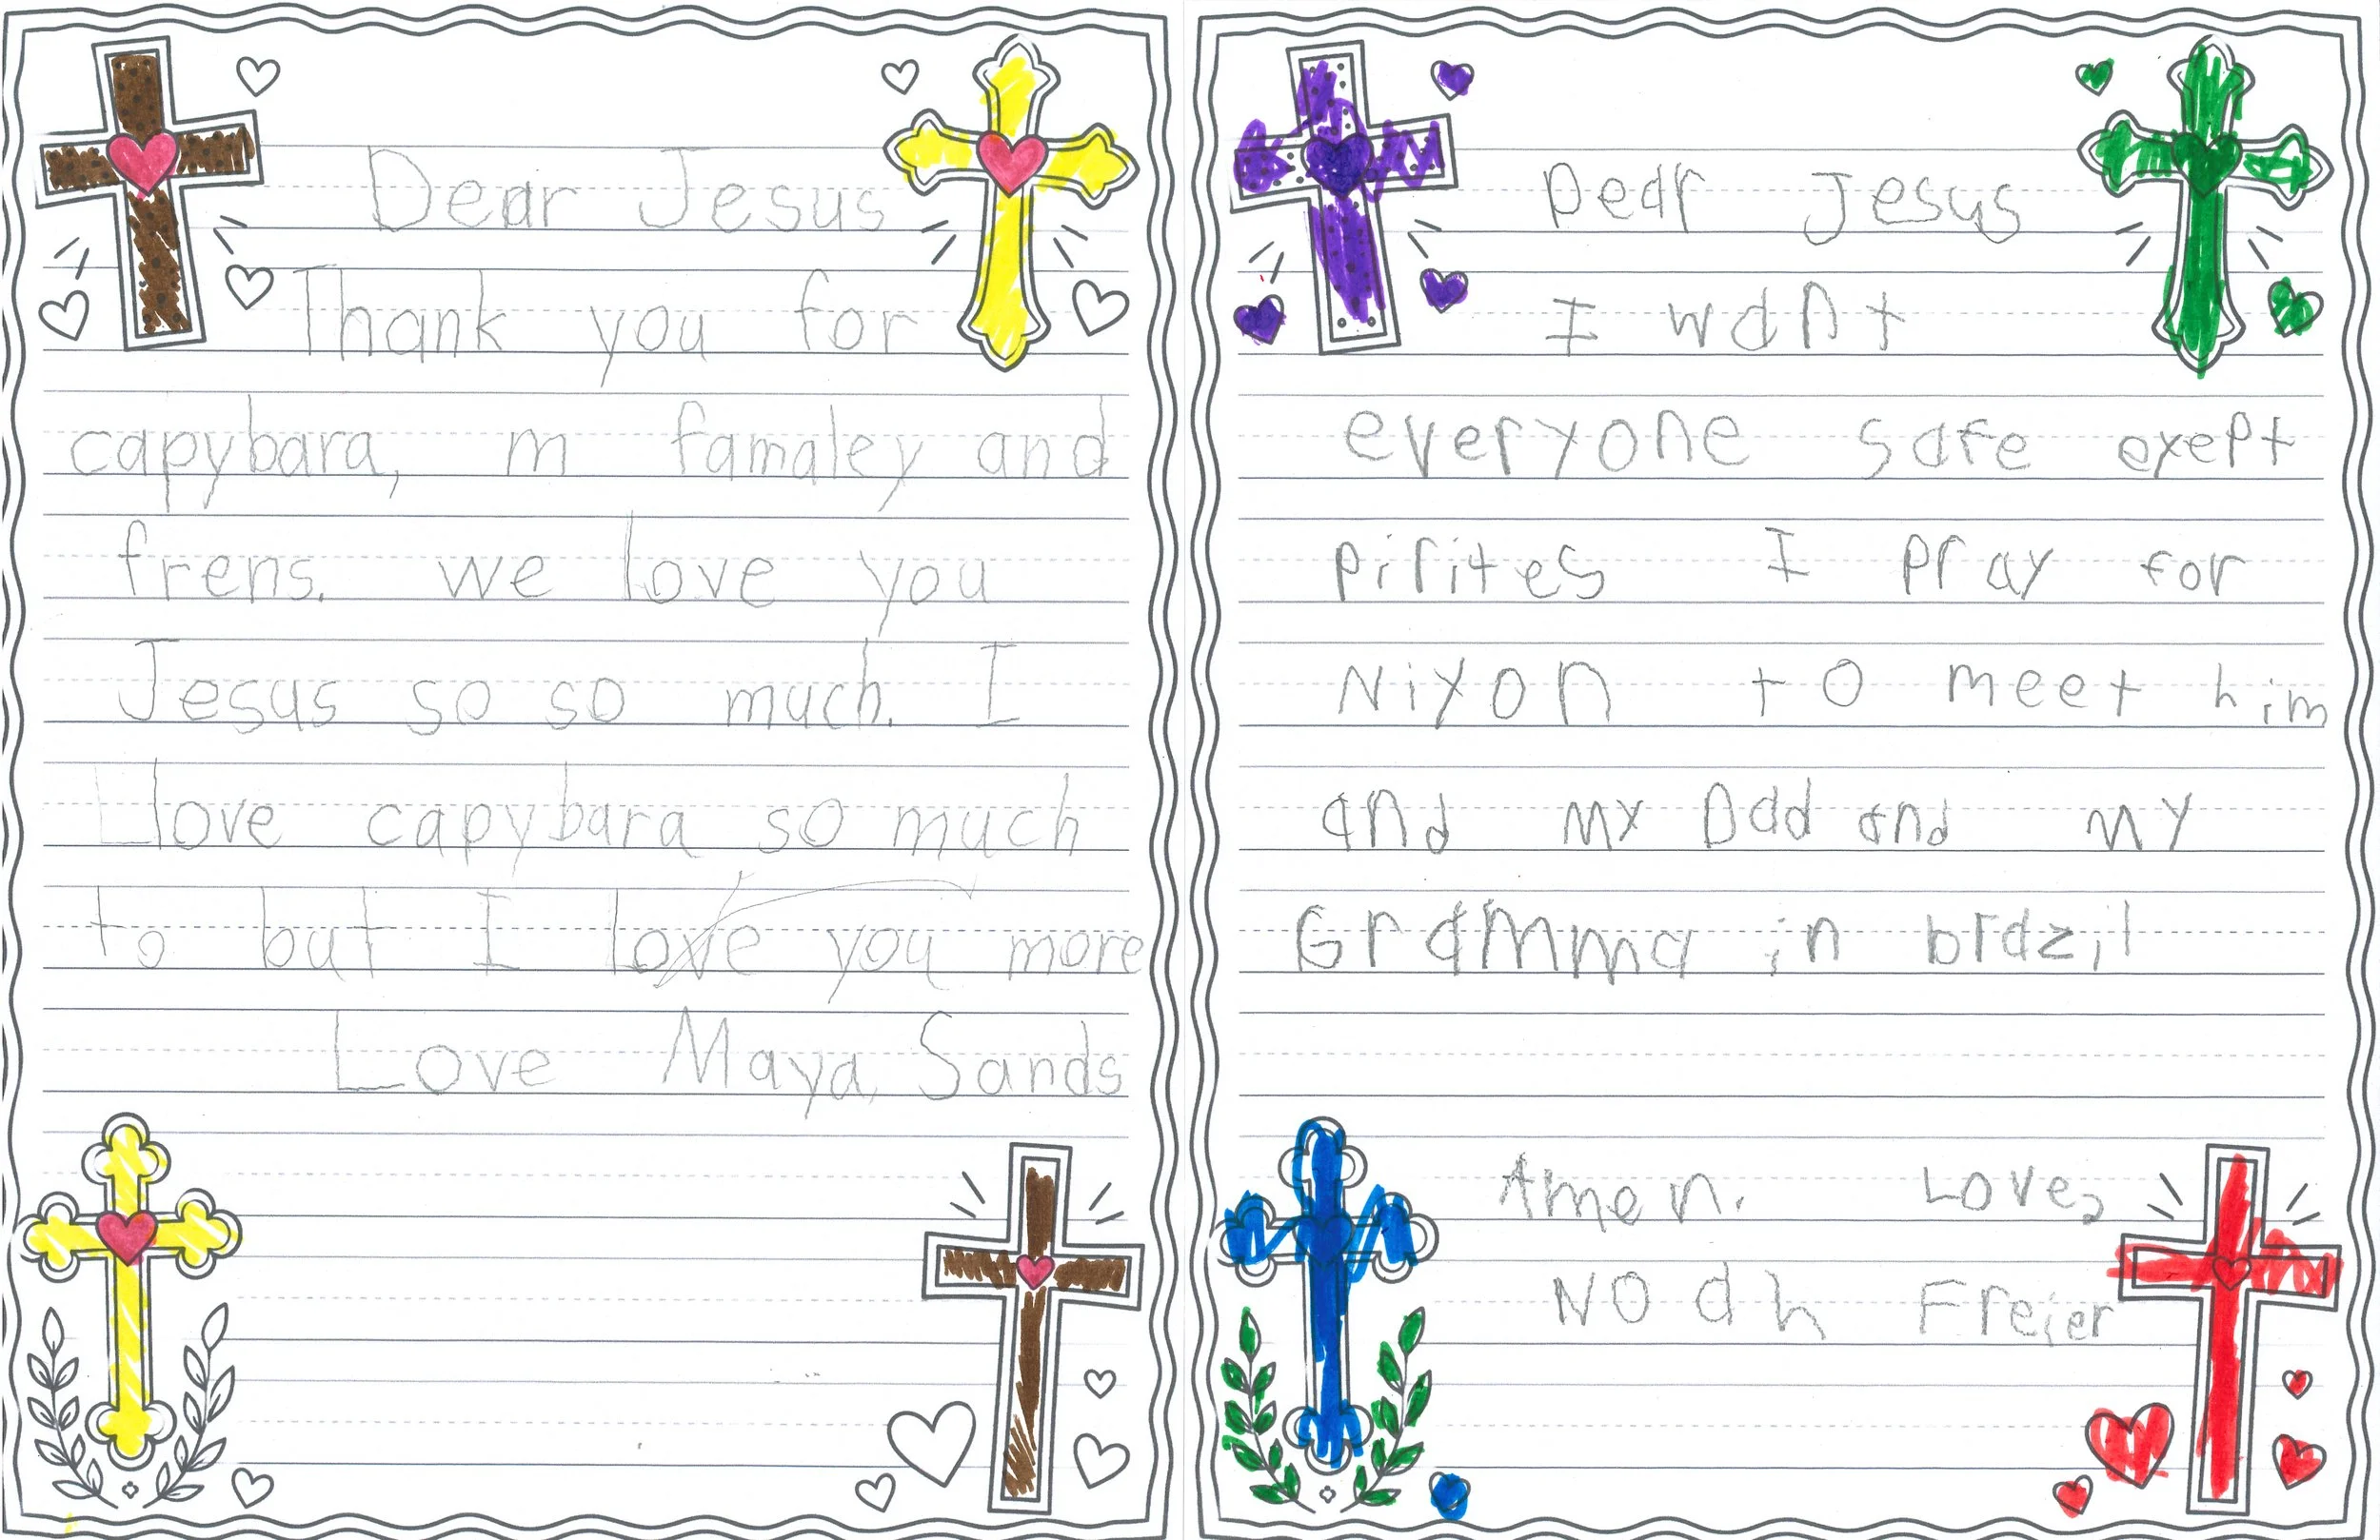 Dear Jesus
Thank you for
capybara, m famaley and
frens. we love you
Jesus so so much. I
love capybara so much
to but I love you more
Love Maya Sands
Dear Jesus
I want
everyone safe exept
pirites I pray for
Nixon to meet him
and my Dad and my
Gramma in brazil
Amen. Love,
Noah Freier